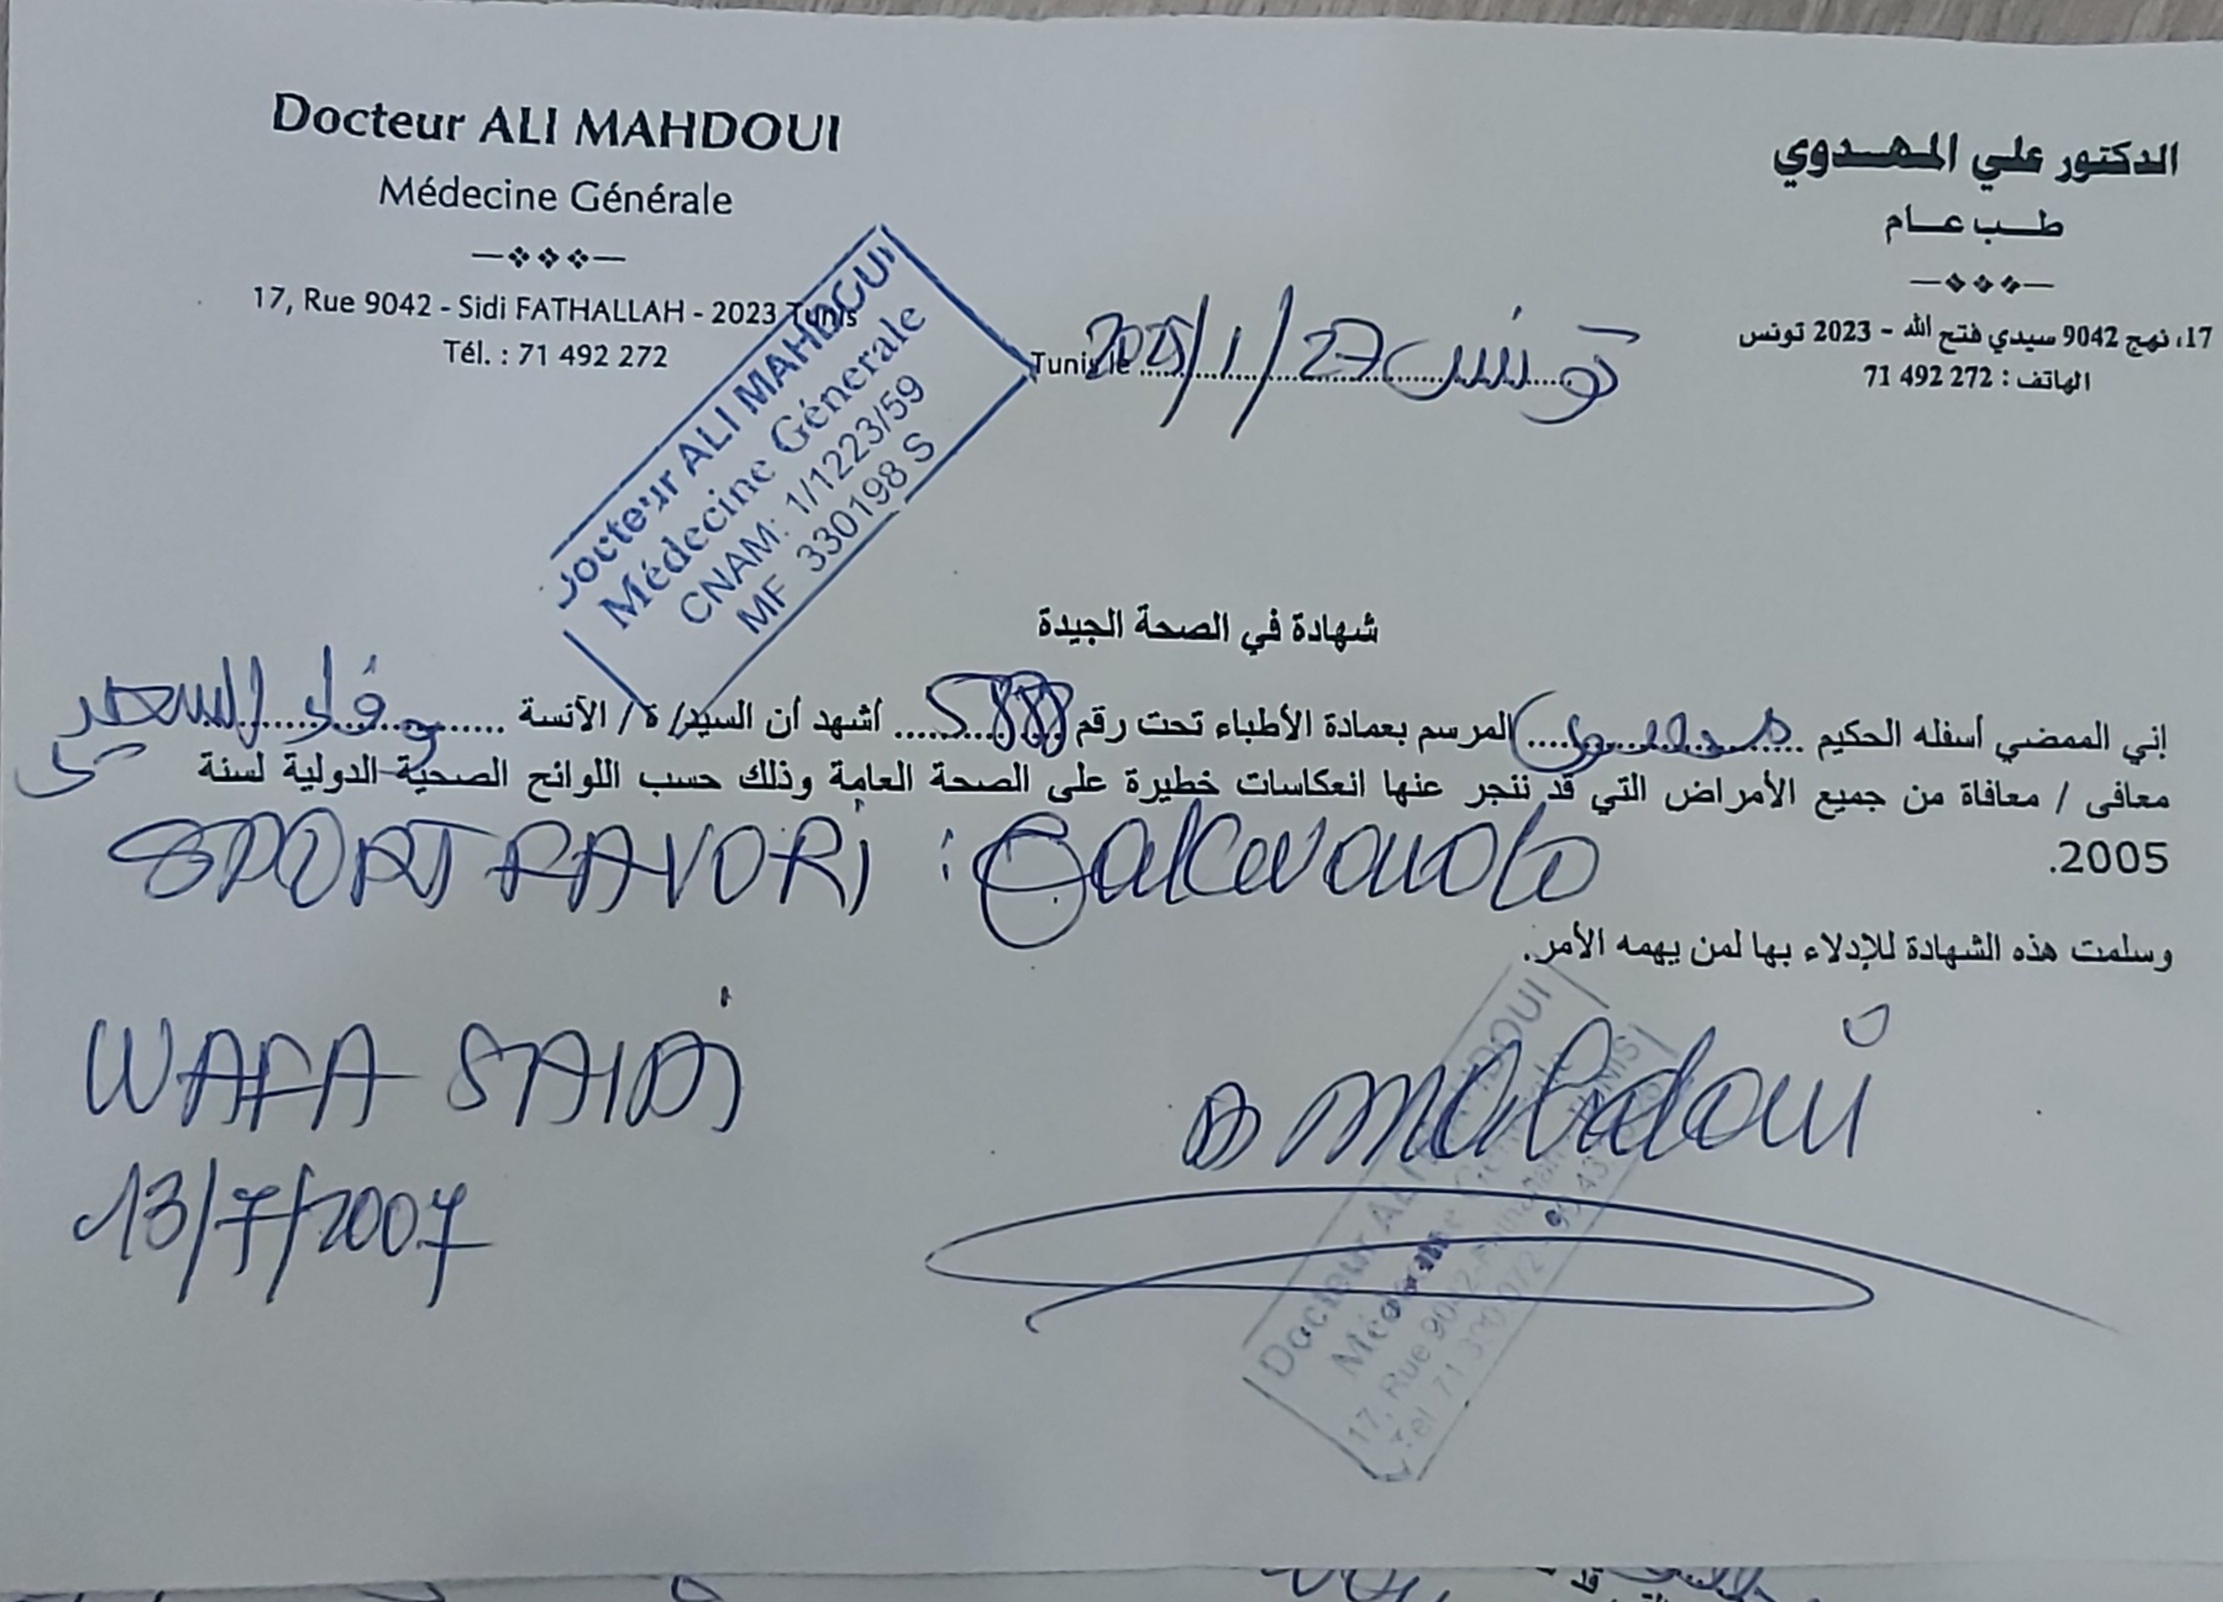 Docteur ALI MAHDOUI
Médecine Générale
17, Rue 9042 - Sidi FATHALLAH - 2023 Tunis
Tél. : 71 492 272
الدكتور علي المهدوي
طب عام
17، نهج 9042 سيدي فتح الله - 2023 تونس
الهاتف : 71 492 272
Docteur ALI MAHDOUI
Médecine Génerale
CNAM: 1/1223/59
MF 330198 S
Tunis le 2025/1/27 تونس
شهادة في الصحة الجيدة
إني الممضي أسفله الحكيم مهدوي المرسم بعمادة الأطباء تحت رقم أشهد أن السيد/ ة / الآنسة وفاء السعيدي
معافى / معافاة من جميع الأمراض التي قد ننجر عنها انعكاسات خطيرة على الصحة العامة وذلك حسب اللوائح الصحية الدولية لسنة
2005.
SPORT FAVORI :
وسلمت هذه الشهادة للإدلاء بها لمن يهمه الأمر.
WAFA SAIDI
13/7/2007
Mahdoui
Docteur ALI MAHDOUI
17, Rue 9042